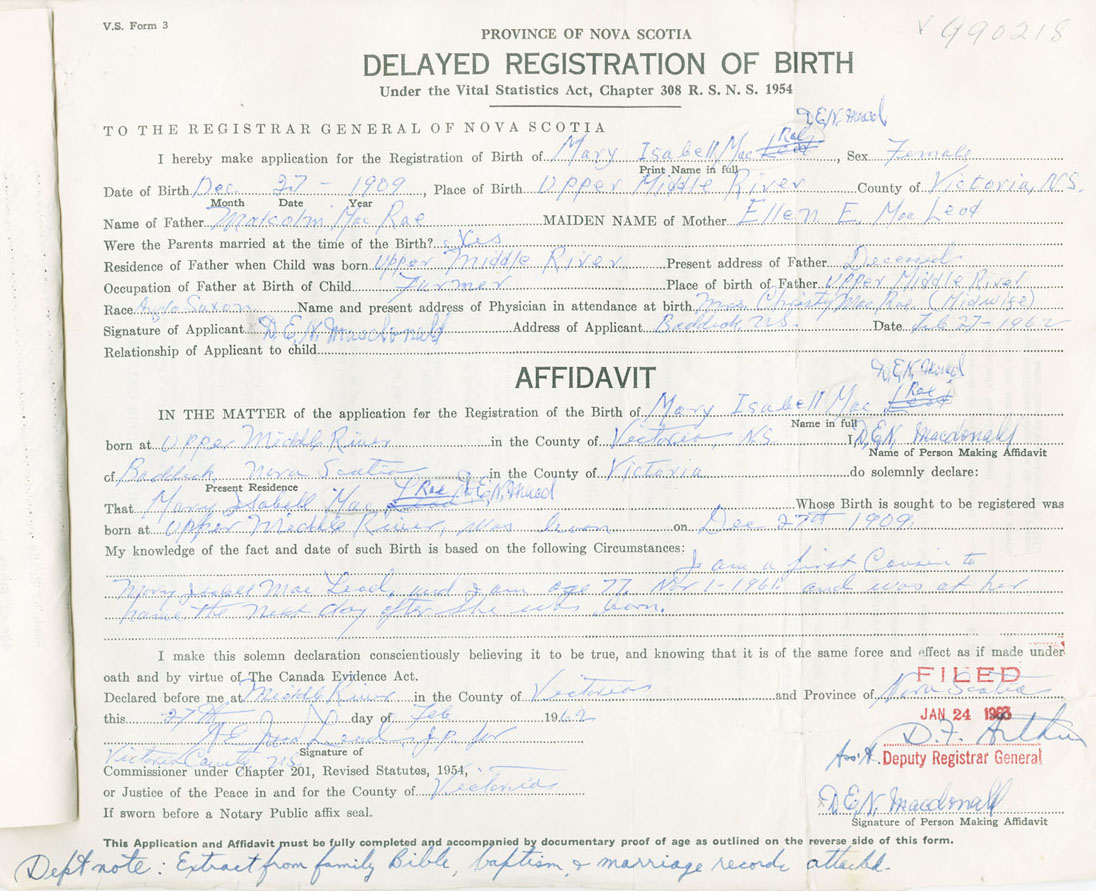 V.S. Form 3
990218
PROVINCE OF NOVA SCOTIA
DELAYED REGISTRATION OF BIRTH
Under the Vital Statistics Act, Chapter 308 R. S. N. S. 1954
D.E.N. Macd
TO THE REGISTRAR GENERAL OF NOVA SCOTIA
I hereby make application for the Registration of Birth of Mary Isabell Mac Rae, Sex Female
Print Name in full
Date of Birth Dec. 27 - 1909, Place of Birth Upper Middle River County of Victoria, N.S.
Month Date Year
Name of Father Malcolm Mac Rae MAIDEN NAME of Mother Ellen E. Mac Leod
Were the Parents married at the time of the Birth? Yes
Residence of Father when Child was born Upper Middle River Present address of Father Deceased
Occupation of Father at Birth of Child Farmer Place of birth of Father Upper Middle River
Race Anglo Saxon Name and present address of Physician in attendance at birth Mrs. Christy Mac Rae (Midwife)
Signature of Applicant D. E. N. Macdonald Address of Applicant Baddeck N.S. Date Feb 27 - 1962
Relationship of Applicant to child
AFFIDAVIT
D.E.N. Macd
IN THE MATTER of the application for the Registration of the Birth of Mary Isabell Mac Rae
Name in full
born at Upper Middle River in the County of Victoria N.S. I, D.E.N. Macdonald
Name of Person Making Affidavit
of Baddeck, Nova Scotia in the County of Victoria do solemnly declare:
Present Residence
That Mary Isabell Mac Rae D.E.N. Macd Whose Birth is sought to be registered was
born at Upper Middle River, was born on Dec 27th 1909.
My knowledge of the fact and date of such Birth is based on the following Circumstances:
I am a first Cousin to
Mary Isabell Mac Leod, and I am age 77, Nov 1 - 1961 and was at her
home the next day after she was born.
I make this solemn declaration conscientiously believing it to be true, and knowing that it is of the same force and effect as if made under
oath and by virtue of The Canada Evidence Act.
FILED
Declared before me at Middle River in the County of Victoria and Province of Nova Scotia
this 27th day of Feb 1962
JAN 24 1963
Mac Leod, J.P. for
D. F. Arthur
Victoria County N.S.
Signature of
Ass't. Deputy Registrar General
Commissioner under Chapter 201, Revised Statutes, 1954,
or Justice of the Peace in and for the County of Victoria
D.E.N. Macdonald
If sworn before a Notary Public affix seal.
Signature of Person Making Affidavit
This Application and Affidavit must be fully completed and accompanied by documentary proof of age as outlined on the reverse side of this form.
Dept note: Extract from family Bible, baptism, & marriage records attached.